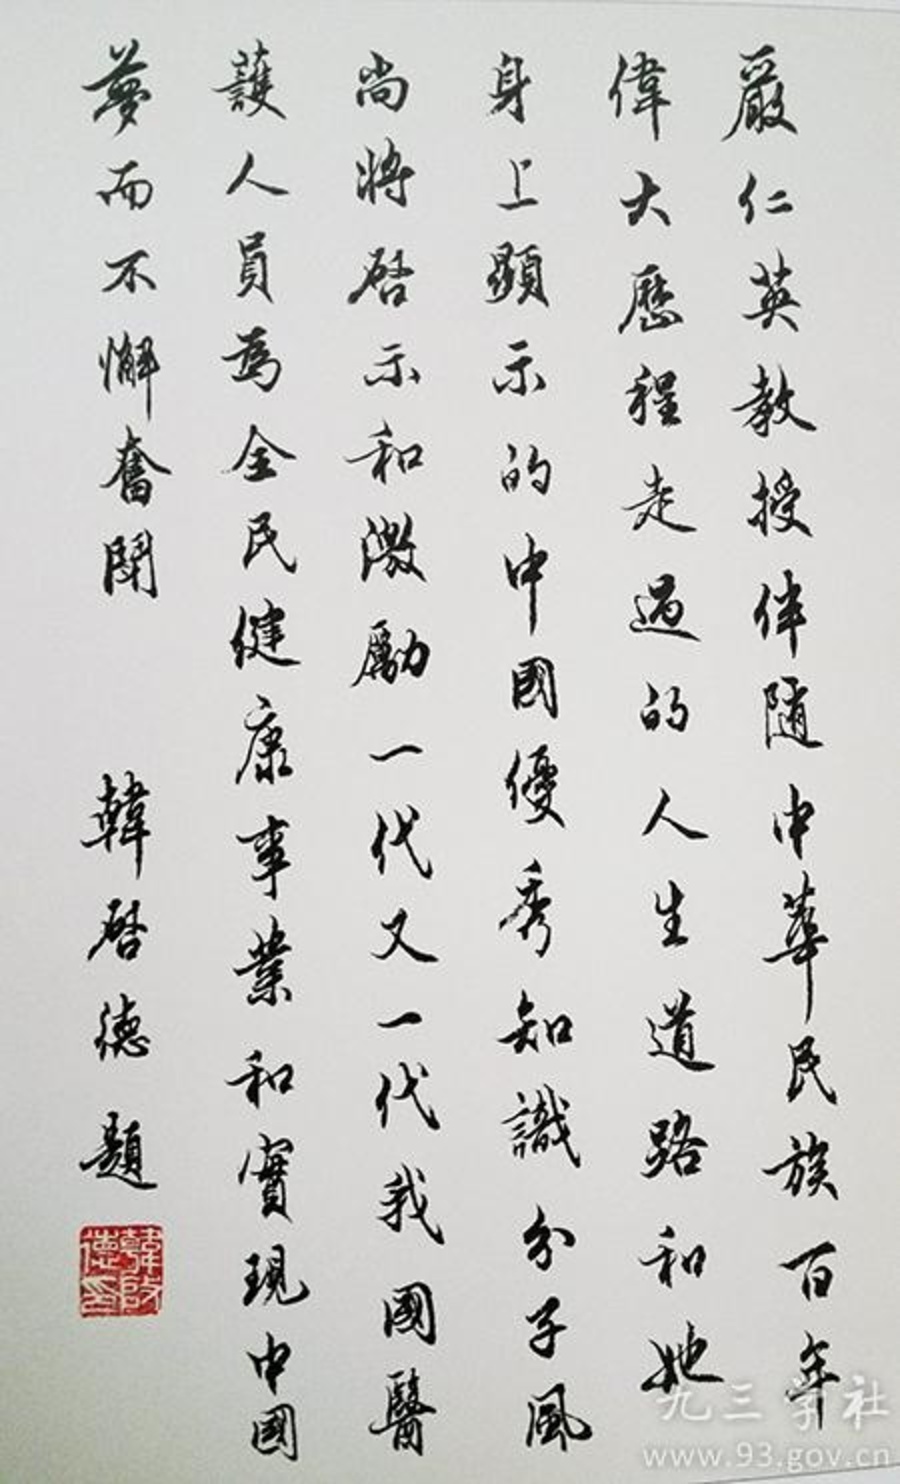 嚴仁英教授伴随中華民族百年
偉大歷程走過的人生道路和她
身上顯示的中國優秀知識分子風
尚將啓示和激勵一代又一代我國醫
護人員為全民健康事業和實現中國
夢而不懈奮鬥
韓啓德題
韓啟德印
九三学社
www.93.gov.cn